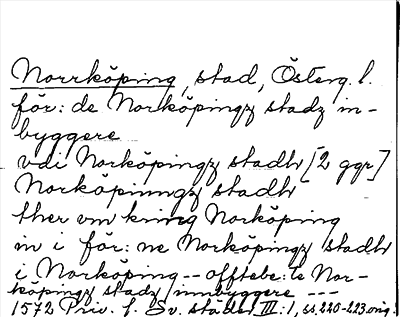 Norrköping, stad, Österg. l.
för: de Norköpingz stadz in-
byggere
vdi Norköpingz stadh [2 ggr]
Norköpinngz stadh
ther vm kring Norköping
in i för: ne Norköpingz stadh
i Norköping -- offtebe: te Nor-
köpingz stadz innbyggere ---
1572 Priv. f. Sv. städer III:1, ss. 220-223 orig.